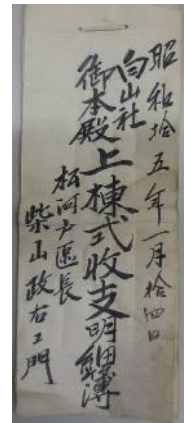 昭和拾五年一月拾四日
白山社
御本殿上棟式收支明細簿
松河戸區長
柴山政右エ門